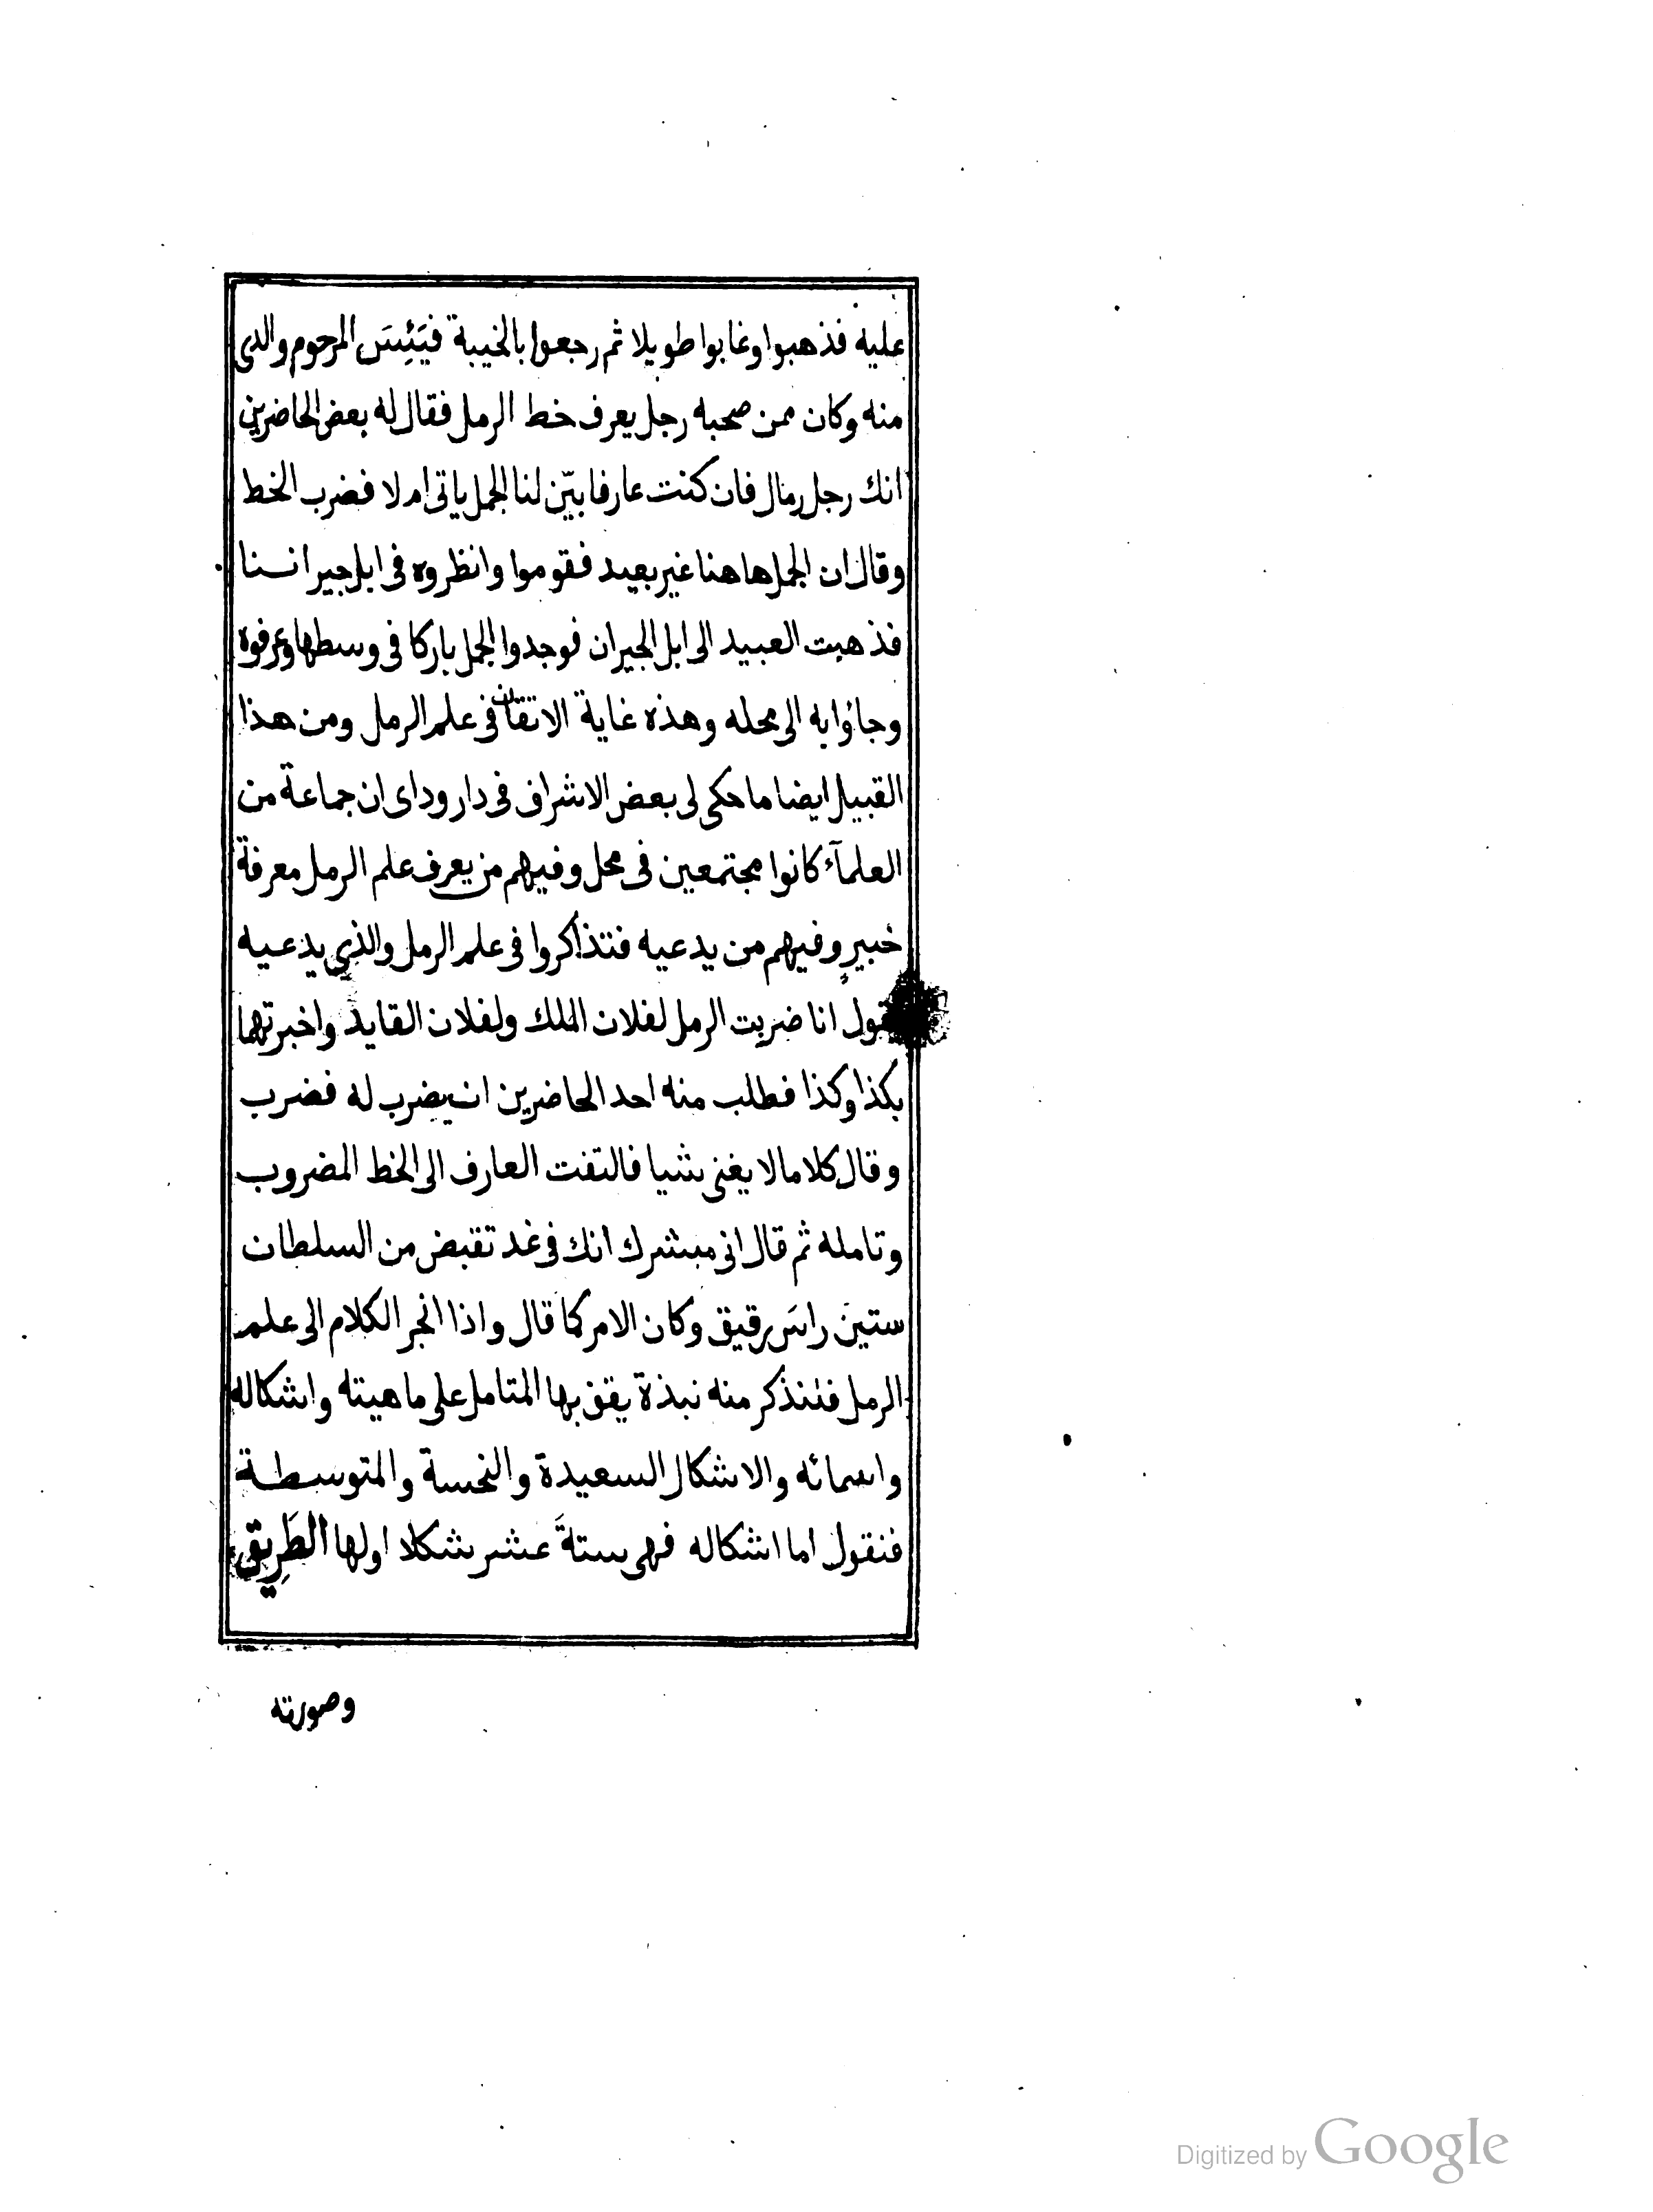 عليه فذهبوا وغابوا طويلا ثم رجعوا بالخيبة فيَئِسَ المرحوم والدى
منه وكان ممن صحبه رجل يعرف خط الرمل فقال له بعض الحاضرين
انك رجل رمال فان كنت عارفا بيّن لنا الجمل ياتى ام لا فضرب الخط
وقال ان الجمل هاهنا غير بعيد فقوموا وانظروه فى ابل جيراننا
فذهبت العبيد الى ابل الجيران فوجدوا الجمل باركا فى وسطها وعرفوه
وجاؤا به الى محله وهذه غاية الاتقان فى علم الرمل ومن هذا
القبيل ايضا ما حكى لى بعض الاشراف فى دار وداى ان جماعة من
العلمآء كانوا مجتمعين فى محل وفيهم من يعرف علم الرمل معرفة
خبيرٍ وفيهم من يدعيه فتذاكروا فى علم الرمل والذي يدعيه
يقول انا ضربت الرمل لفلان الملك ولفلان القايد واخبرتهما
بكذا وكذا فطلب منه احد الحاضرين ان يضرب له فضرب
وقال كلاما لا يغنى شيا فالتفت العارف الى الخط المضروب
وتامله ثم قال انى مبشرك انك فى غد تقبض من السلطان
ستين راسَ رقيق وكان الامر كما قال واذا انجر الكلام الى علم
الرمل فلنذكر منه نبذة يقف بها المتامل على ماهيته واشكاله
واسمائه والاشكال السعيدة والنحسة والمتوسطة
فنقول اما اشكاله فهى ستةَ عشر شكلا اولها الطَرِيق
وصورته
Digitized by Google